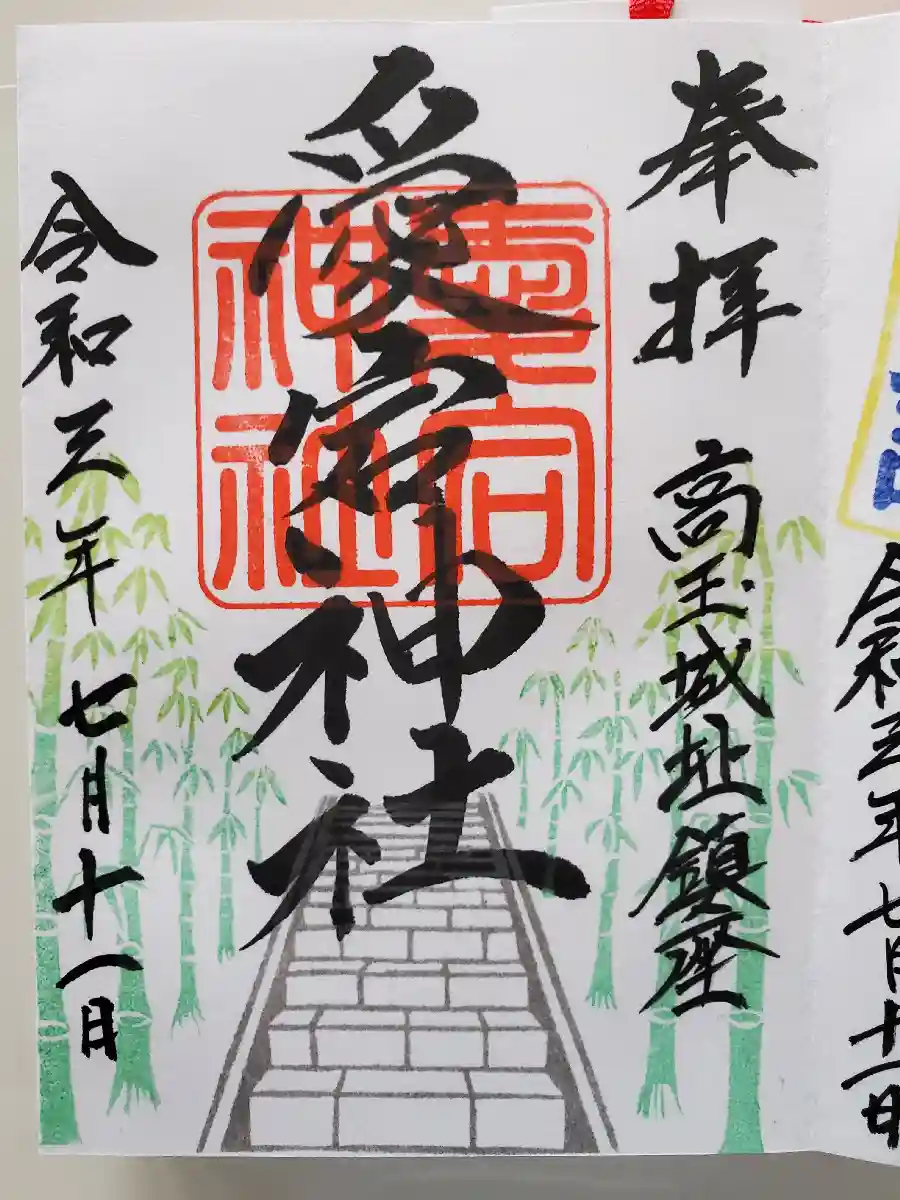 令和三年七月十一日
奉拝
高玉城址鎮座
愛宕神社
愛宕
神社
令和三年七月十一日